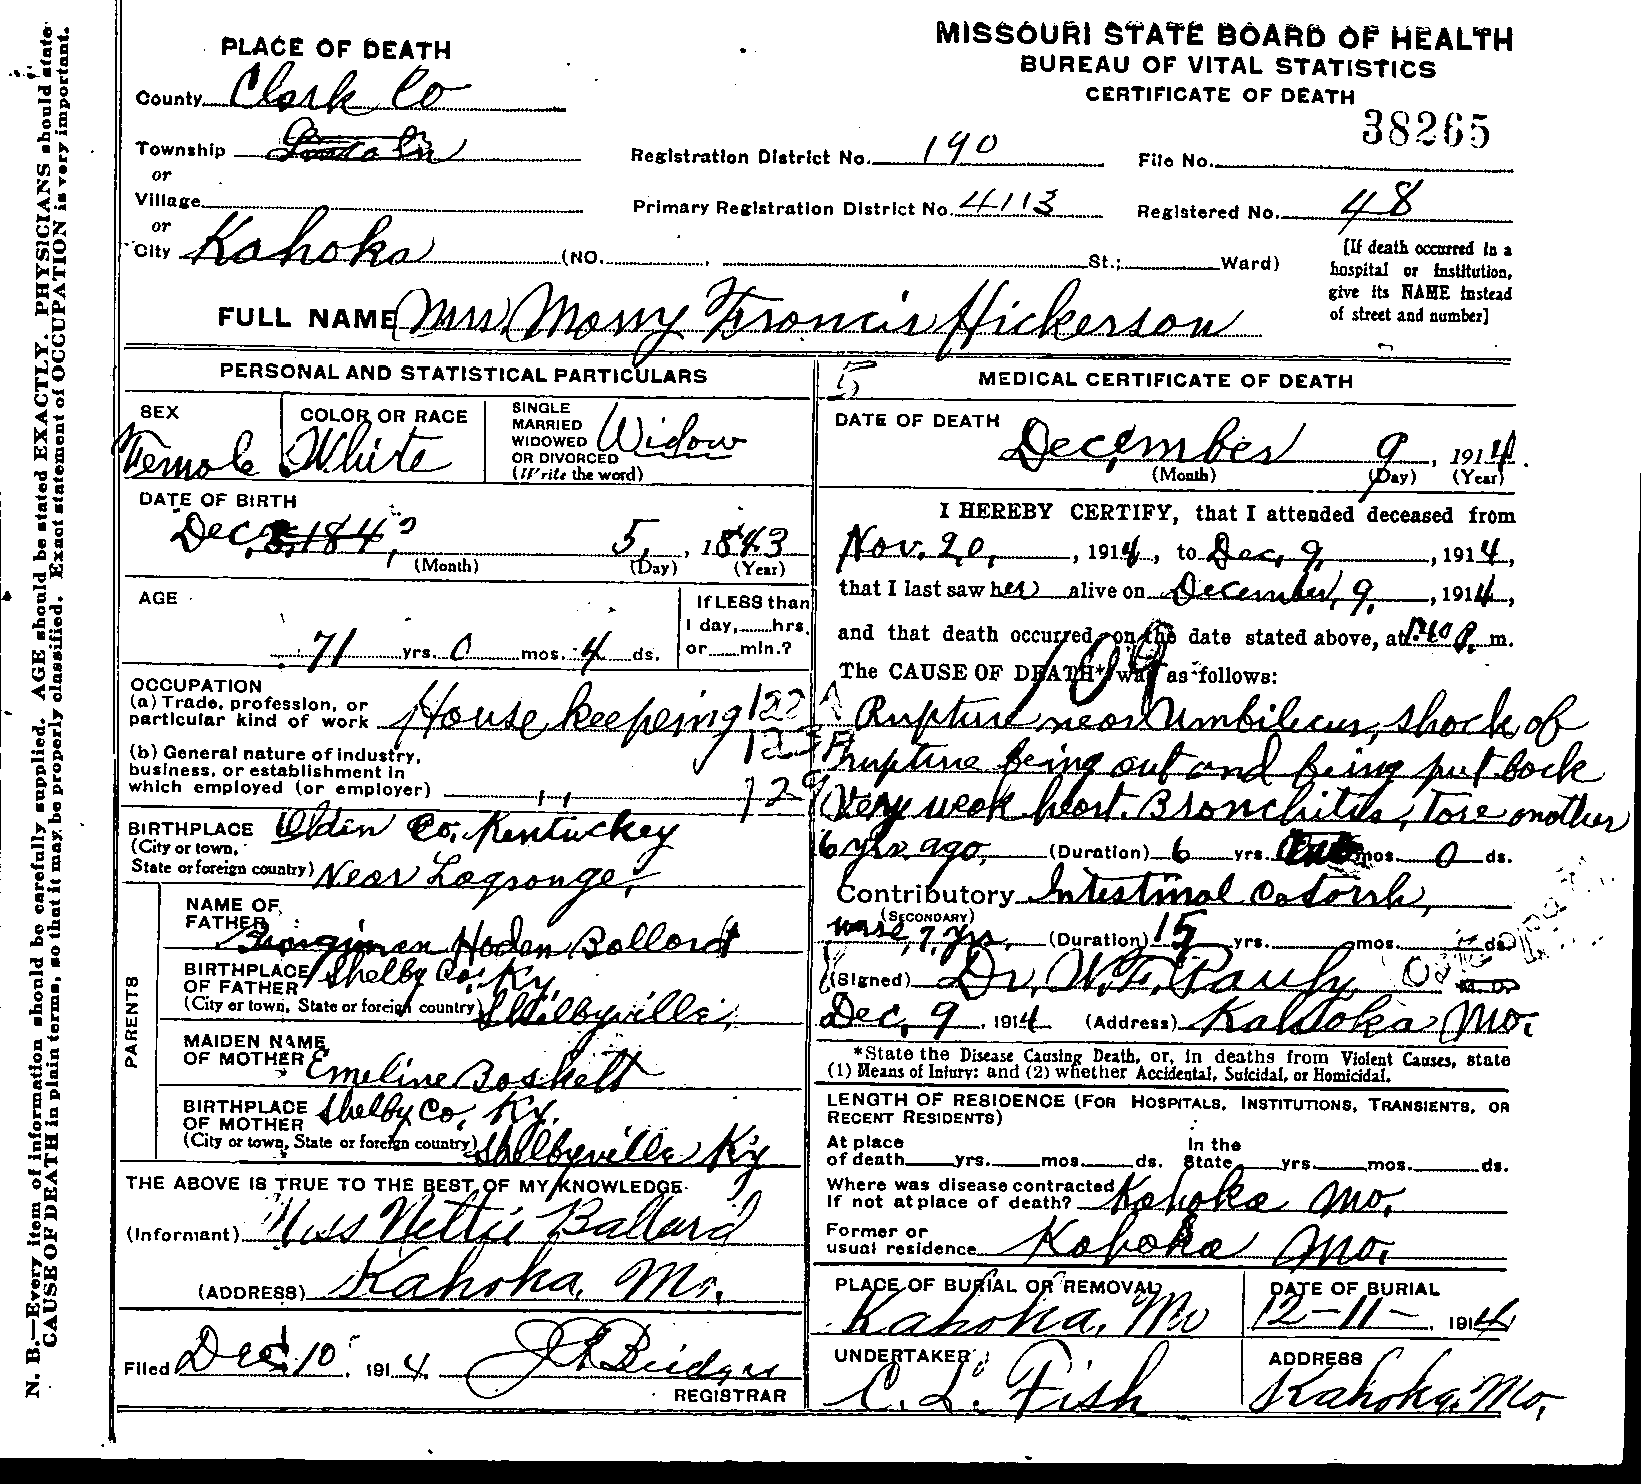 MISSOURI STATE BOARD OF HEALTH
BUREAU OF VITAL STATISTICS
CERTIFICATE OF DEATH
38265
PLACE OF DEATH
County Clark Co
Township Lincoln
or
Village
or
City Kahoka (NO. St.; Ward)
Registration District No. 190 File No.
Primary Registration District No. 4113 Registered No. 48
[If death occurred in a
hospital or institution,
give its NAME instead
of street and number]
FULL NAME Mrs Mary Francis Hickerson
PERSONAL AND STATISTICAL PARTICULARS
SEX Female
COLOR OR RACE White
SINGLE
MARRIED
WIDOWED
OR DIVORCED
(Write the word) Widow
DATE OF BIRTH
Dec. 5, 1843
(Month) (Day) (Year)
AGE
71 yrs. 0 mos. 4 ds.
If LESS than
1 day, hrs.
or min.?
OCCUPATION
(a) Trade, profession, or
particular kind of work House keepeing
(b) General nature of industry,
business, or establishment in
which employed (or employer) " "
BIRTHPLACE Oldin Co. Kentuckey
(City or town,
State or foreign country) Near Lagrange,
PARENTS
NAME OF
FATHER Hoden Ballard
BIRTHPLACE
OF FATHER Shelby Co. Ky.
(City or town, State or foreign country) Shilbyville,
MAIDEN NAME
OF MOTHER Emeline Boskett
BIRTHPLACE
OF MOTHER Shelby Co, Ky.
(City or town, State or foreign country) Shelbyville Ky
THE ABOVE IS TRUE TO THE BEST OF MY KNOWLEDGE
(Informant) Miss Nettie Ballard
(ADDRESS) Kahoka, Mo.
Filed Dec. 10, 1914 J Bridges
REGISTRAR
5
MEDICAL CERTIFICATE OF DEATH
DATE OF DEATH
December 9, 1914.
(Month) (Day) (Year)
I HEREBY CERTIFY, that I attended deceased from
Nov. 20, 1914, to Dec, 9, 1914,
that I last saw her alive on December, 9, 1914,
and that death occurred, on the date stated above, at P. m.
The CAUSE OF DEATH* was as follows:
109
Rupture near Umbilicus, shock of
rupture being out and being put back
Very weak heart. Bronchitis, Tore another
6 yrs. ago, (Duration) 6 yrs. mos. 0 ds.
Contributory Intestinal Catarrh,
(SECONDARY)
worse, 7 yrs, (Duration) 15 yrs. mos. ds.
(Signed) Dr. W. F. M.D.
Dec, 9, 1914 (Address) Kahoka Mo.
*State the Disease Causing Death, or, in deaths from Violent Causes, state
(1) Means of Injury: and (2) whether Accidental, Suicidal, or Homicidal.
LENGTH OF RESIDENCE (FOR HOSPITALS, INSTITUTIONS, TRANSIENTS, OR
RECENT RESIDENTS)
At place In the
of death yrs. mos. ds. State yrs. mos. ds.
Where was disease contracted
If not at place of death? Kahoka Mo.
Former or
usual residence Kahoka Mo.
PLACE OF BURIAL OR REMOVAL
Kahoka, Mo
DATE OF BURIAL
12-11-, 1914
UNDERTAKER
C. L. Fish
ADDRESS
Kahoka, Mo,
N. B.—Every item of information should be carefully supplied. AGE should be stated EXACTLY. PHYSICIANS should state
CAUSE OF DEATH in plain terms, so that it may be properly classified. Exact statement of OCCUPATION is very important.